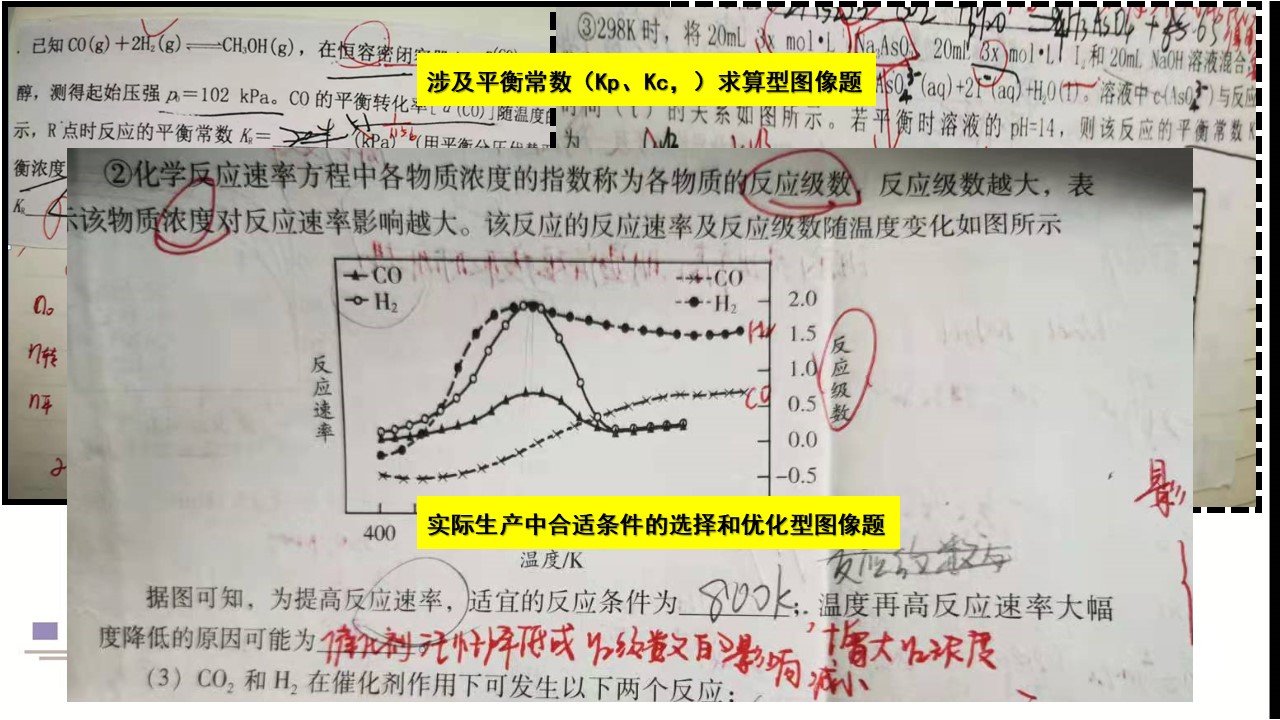 .已知CO(g)+2H₂(g)⇌CH₃OH(g)，在恒容密闭
醇，测得起始压强 p₀=102 kPa。CO的平衡转化率[α(CO)]随温度
示，R点时反应的平衡常数 K_R=
(kPa)⁻²(用平衡分压代替
衡浓度
K_R
n₀
n转
n平
③298K时，将20mL 3x mol·L⁻¹ Na₃AsO₃ 20mL 3x mol·L⁻¹ I₂和20mL NaOH溶液混合
AsO₄³⁻(aq)+2I⁻(aq)+H₂O(l)。溶液中c(AsO₄³⁻)与反应
时间（t）的关系如图所示。若平衡时溶液的pH=14，则该反应的平衡常数K
为
涉及平衡常数（Kp、Kc，）求算型图像题
②化学反应速率方程中各物质浓度的指数称为各物质的反应级数，反应级数越大，表
示该物质浓度对反应速率影响越大。该反应的反应速率及反应级数随温度变化如图所示
CO
H₂
CO
H₂
2.0
1.5
1.0
0.5
0.0
-0.5
反应速率
反应级数
H₂
CO
影
400
实际生产中合适条件的选择和优化型图像题
温度/K
反应级数与
据图可知，为提高反应速率，适宜的反应条件为 800K ；温度再高反应速率大幅
，增大H₂浓度
度降低的原因可能为 催化剂活性降低或H₂级数又自影响减小
(3) CO₂ 和 H₂ 在催化剂作用下可发生以下两个反应：